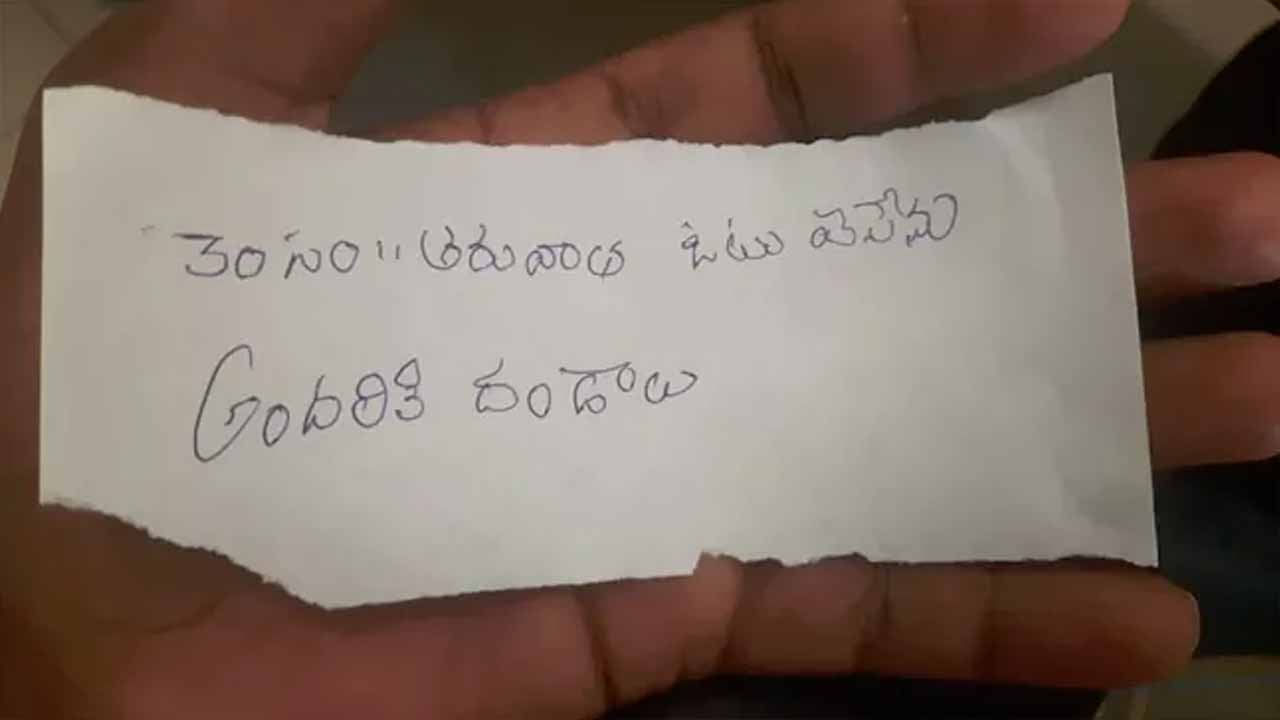 30 సం" తరువాత ఓటు వెసేను
అందరికి దండాలు